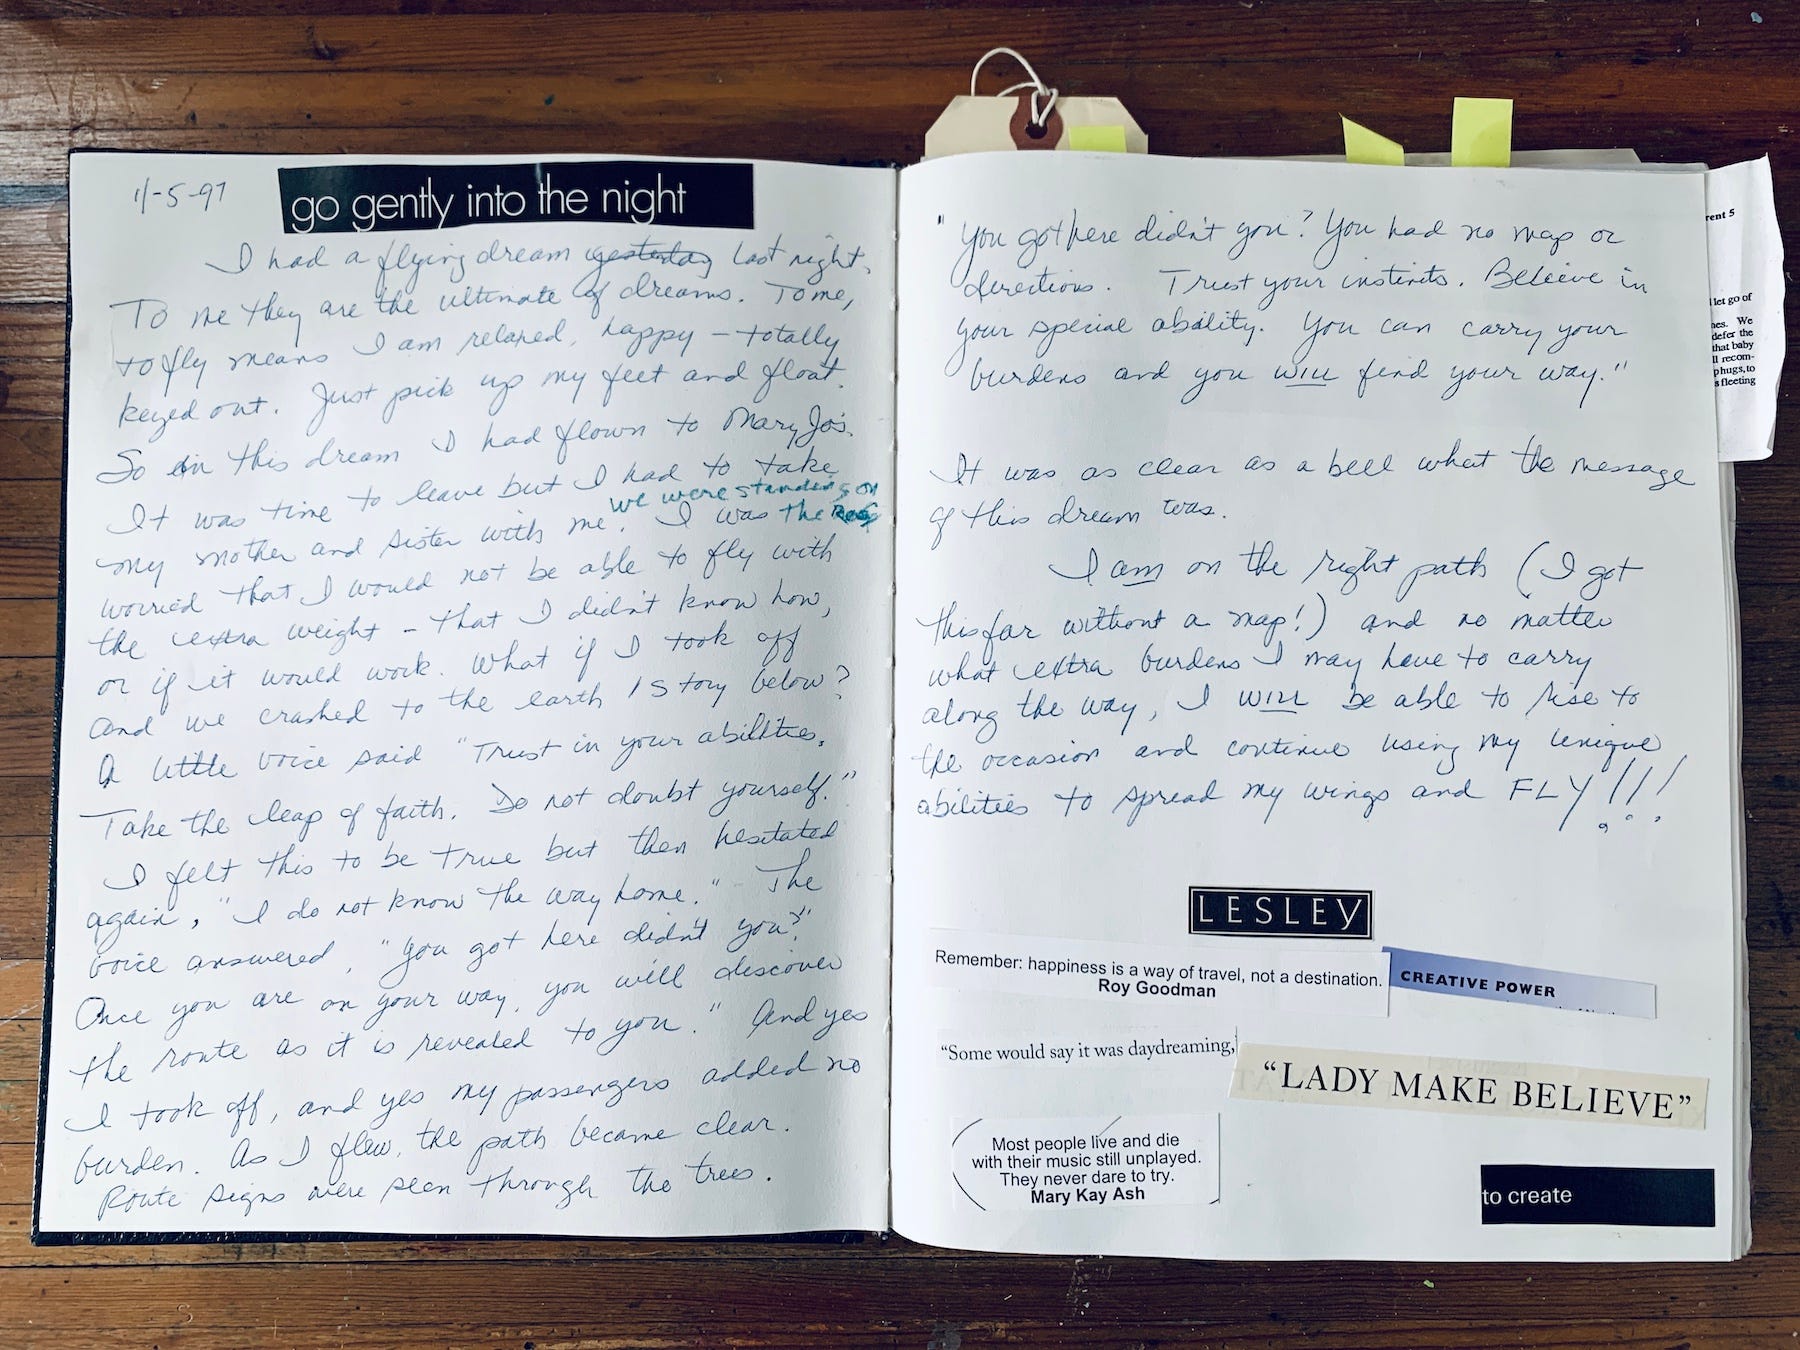 11-5-97
go gently into the night
I had a flying dream yesterday last night.
To me they are the ultimate of dreams. To me,
to fly means I am relaxed, happy - totally
keyed out. Just pick up my feet and float.
So in this dream I had flown to Mary Jo's.
It was time to leave but I had to take
we were standing on
my mother and sister with me. I was the roof
worried that I would not be able to fly with
the extra weight - that I didn't know how,
or if it would work. What if I took off
and we crashed to the earth 1 story below?
A little voice said "Trust in your abilities.
Take the leap of faith. Do not doubt yourself."
I felt this to be true but then hesitated
again, "I do not know the way home." The
voice answered, "You got here didn't you?"
Once you are on your way, you will discover
the route as it is revealed to you." And yes
I took off, and yes my passengers added no
burden. As I flew, the path became clear.
Route signs were seen through the trees.
"You got here didn't you? You had no map or
directions. Trust your instincts. Believe in
your special ability. You can carry your
burdens and you will find your way."
It was as clear as a bell what the message
of this dream was.
I am on the right path (I got
this far without a map!) and no matter
what extra burdens I may have to carry
along the way, I will be able to rise to
the occasion and continue using my unique
abilities to spread my wings and FLY!!!
LESLEY
Remember: happiness is a way of travel, not a destination.
Roy Goodman
CREATIVE POWER
"Some would say it was daydreaming,
"LADY MAKE BELIEVE"
Most people live and die
with their music still unplayed.
They never dare to try.
Mary Kay Ash
to create
rent 5
let go of
nes. We
defer the
that baby
ll recom-
phugs, to
s fleeting